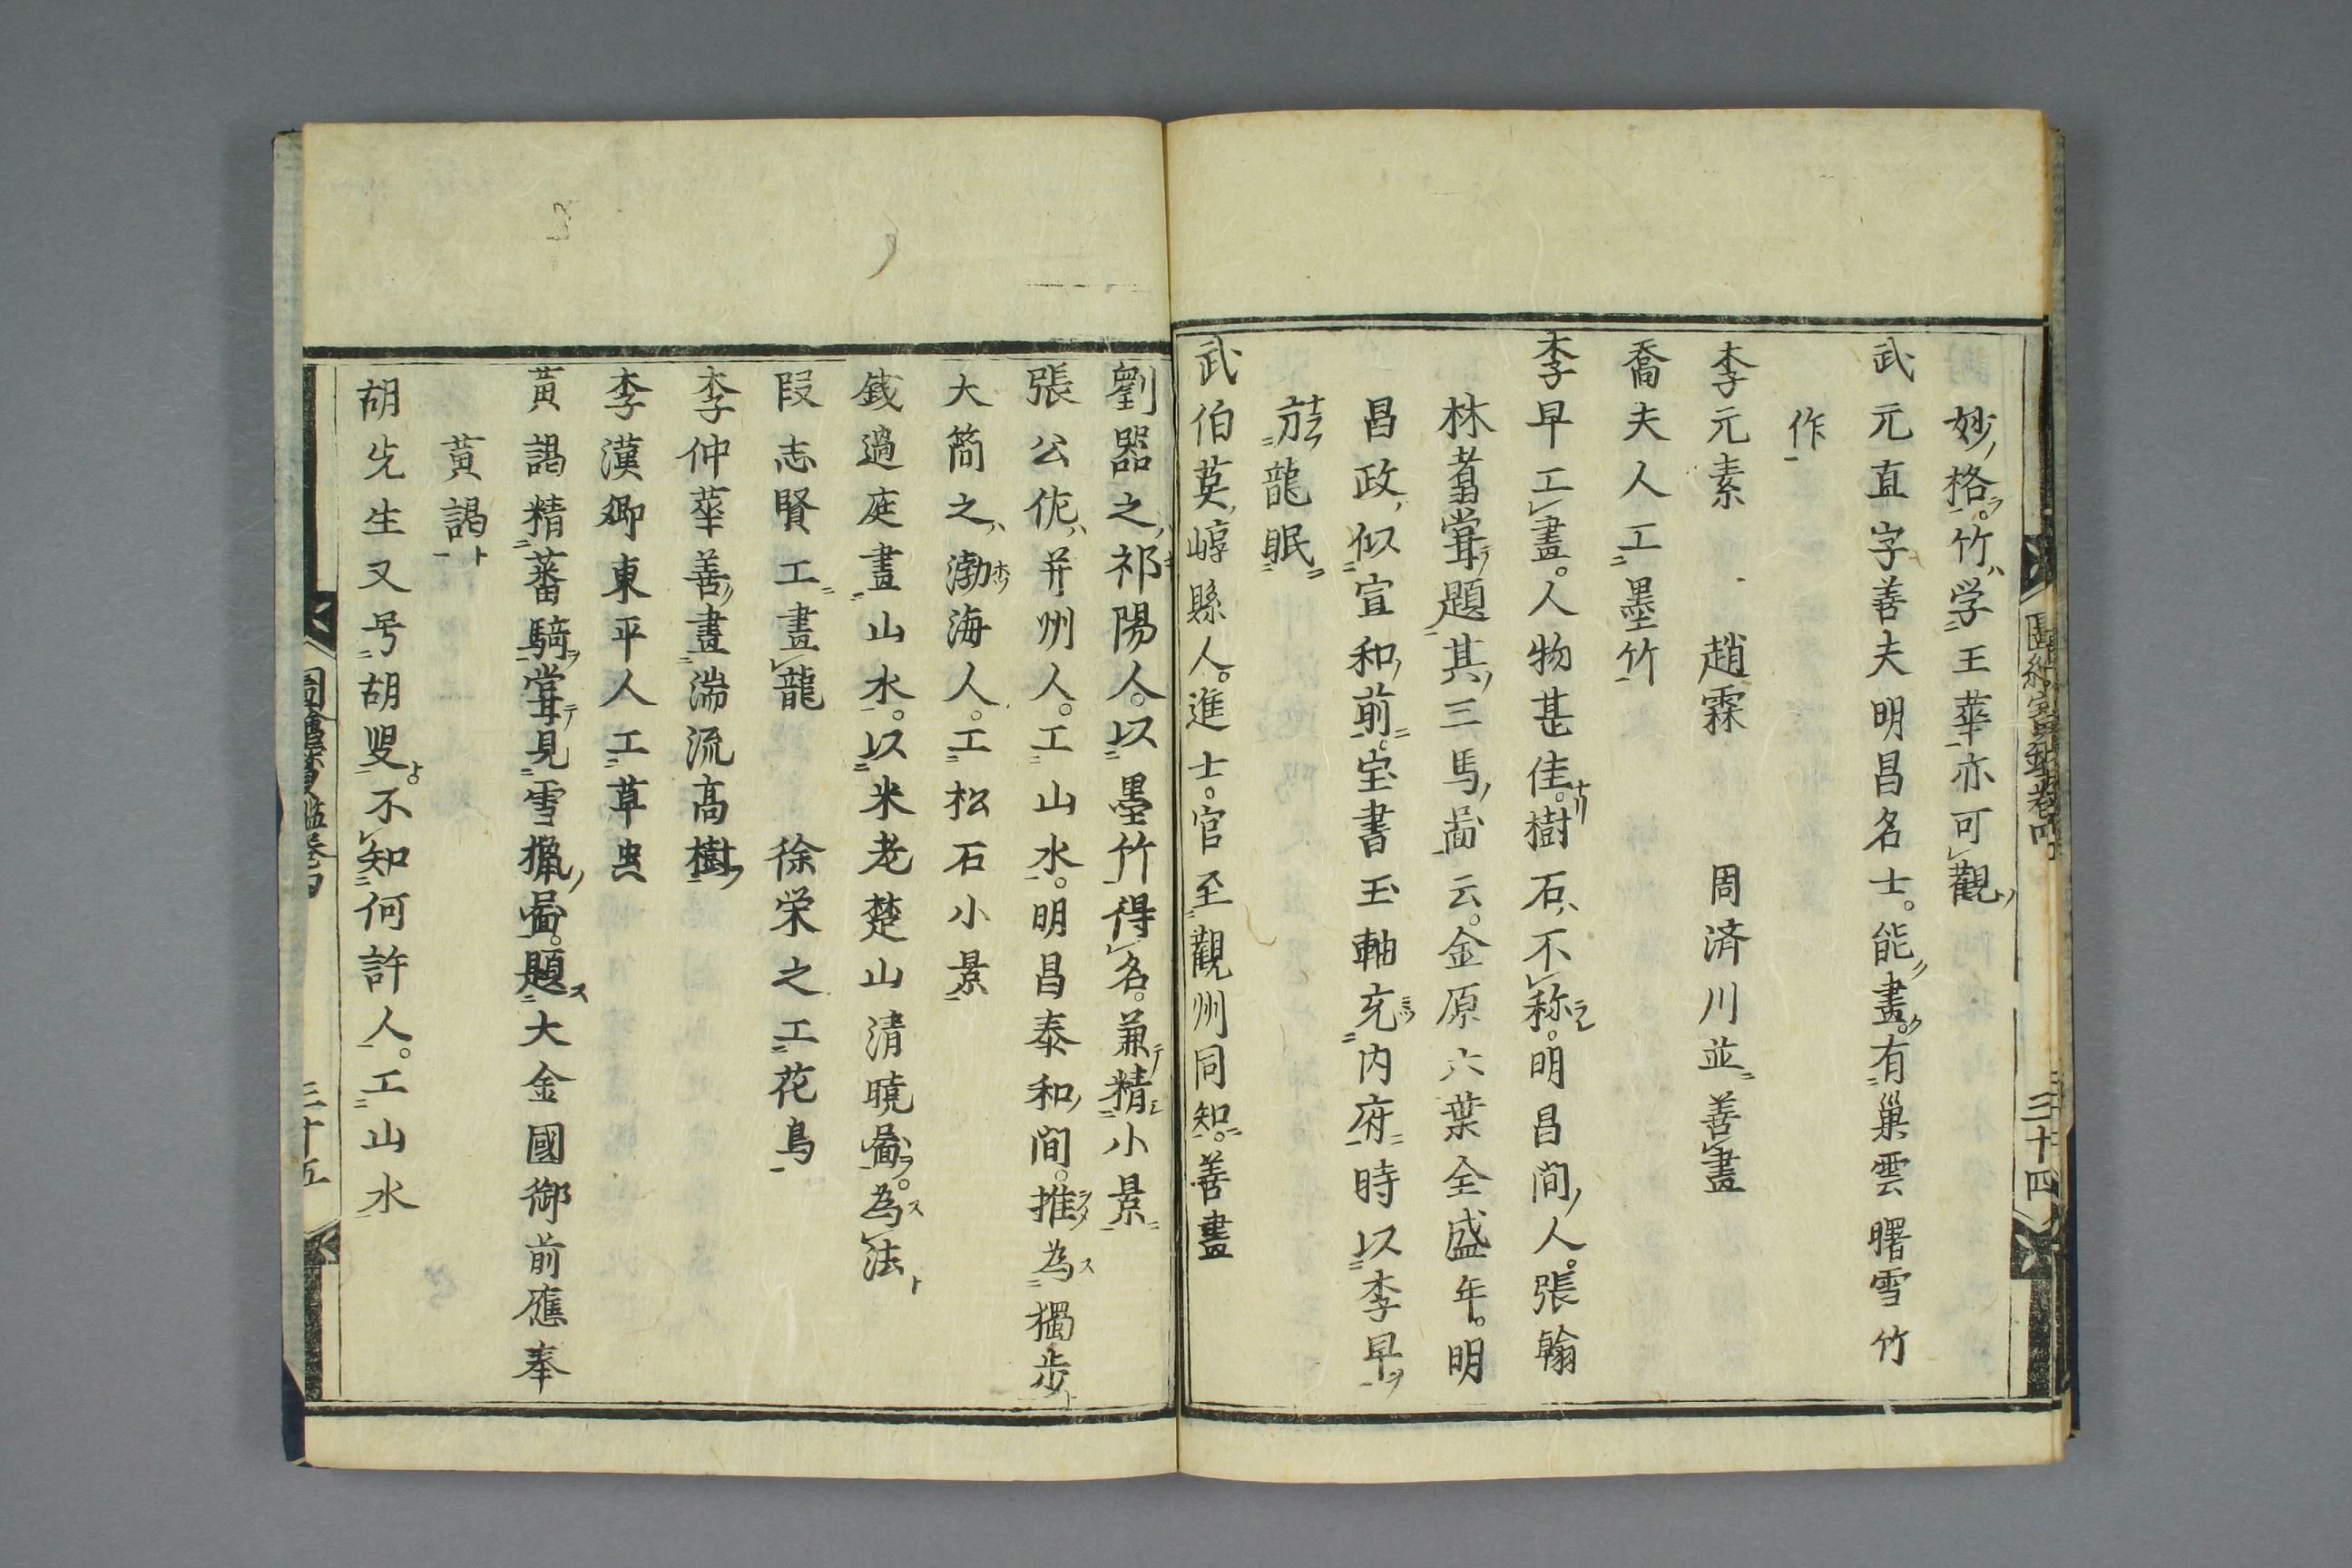 妙格竹学王華亦可觀
武元直字善夫明昌名士。能畫。有巢雲曙雪竹
作
李元素　趙霖　周済川並善畫
喬夫人工墨竹
李早工畫。人物甚佳。樹石不称。明昌間人。張翰
林嘗題其三馬啚云。金原六葉全盛年。明
昌政似宣和前。宝書玉軸充内府時以李早
龍眠
武伯英崞縣人。進士。官至觀州同知。善畫
劉器之祁陽人。以墨竹得名。兼精小景
張公佐并州人。工山水。明昌泰和間。推為獨步
大簡之渤海人。工松石小景
錢過庭畫山水。以米老楚山清曉啚。為法
段志賢工畫龍　徐栄之工花鳥
李仲華善畫湍流高樹
李漢卿東平人工草虫
黃謁精蕃騎嘗見雪猟啚。題大金國御前應奉
黃謁
胡先生又号胡叟。不知何許人。工山水
三十四
三十五